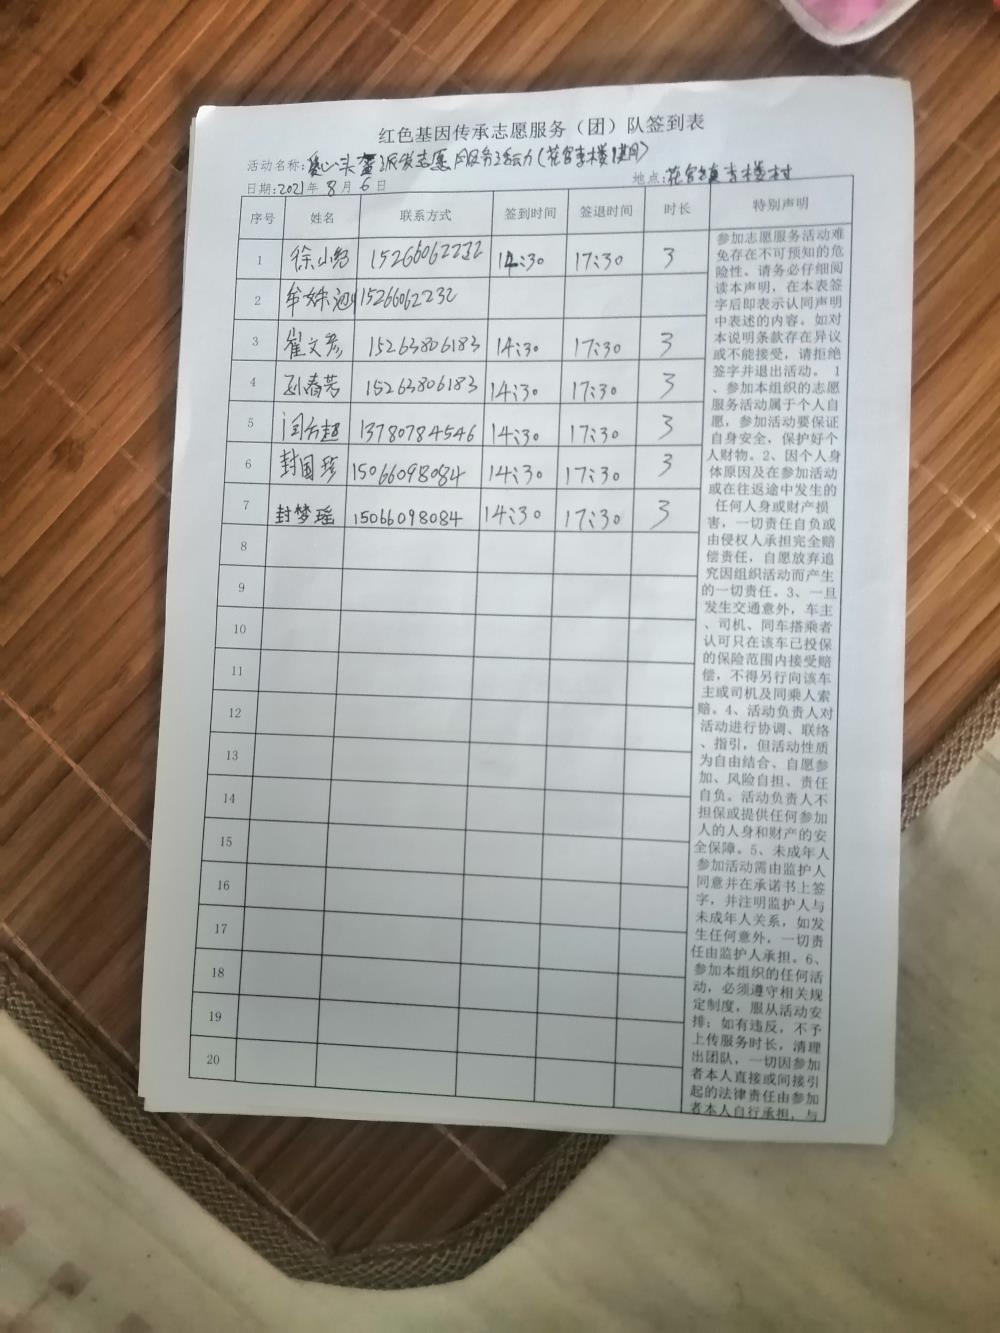 红色基因传承志愿服务（团）队签到表
活动名称：爱心头盔派发志愿服务活动（花官李楼使用）
日期：2021年 8月 6日 地点：花官镇李楼村
序号 姓名 联系方式 签到时间 签退时间 时长 特别声明
1 徐小 15266062232 14:30 17:30 3
2 15266062232
3 崔文彦 15263806183 14:30 17:30 3
4 孙春芳 15263806183 14:30 17:30 3
5 闫 超 13780784546 14:30 17:30 3
6 封国珍 15066098084 14:30 17:30 3
7 封梦瑶 15066098084 14:30 17:30 3
8
9
10
11
12
13
14
15
16
17
18
19
20
参加志愿服务活动难
免存在不可预知的危
险性。请务必仔细阅
读本声明，在本表签
字后即表示认同声明
中表述的内容。如对
本说明条款存在异议
或不能接受，请拒绝
签字并退出活动。 1
、参加本组织的志愿
服务活动属于个人自
愿，参加活动要保证
自身安全，保护好个
人财物。2、因个人身
体原因及在参加活动
或在往返途中发生的
任何人身或财产损
害，一切责任自负或
由侵权人承担完全赔
偿责任，自愿放弃追
究因组织活动而产生
的一切责任。3、一旦
发生交通意外，车主
、司机、同车搭乘者
认可只在该车已投保
的保险范围内接受赔
偿，不得另行向该车
主或司机及同乘人索
赔。4、活动负责人对
活动进行协调、联络
、指引，但活动性质
为自由结合、自愿参
加、风险自担、责任
自负。活动负责人不
担保或提供任何参加
人的人身和财产的安
全保障。5、未成年人
参加活动需由监护人
同意并在承诺书上签
字，并注明监护人与
未成年人关系，如发
生任何意外，一切责
任由监护人承担。6、
参加本组织的任何活
动，必须遵守相关规
定制度，服从活动安
排；如有违反，不予
上传服务时长，清理
出团队，一切因参加
者本人直接或间接引
起的法律责任由参加
者本人自行承担，与